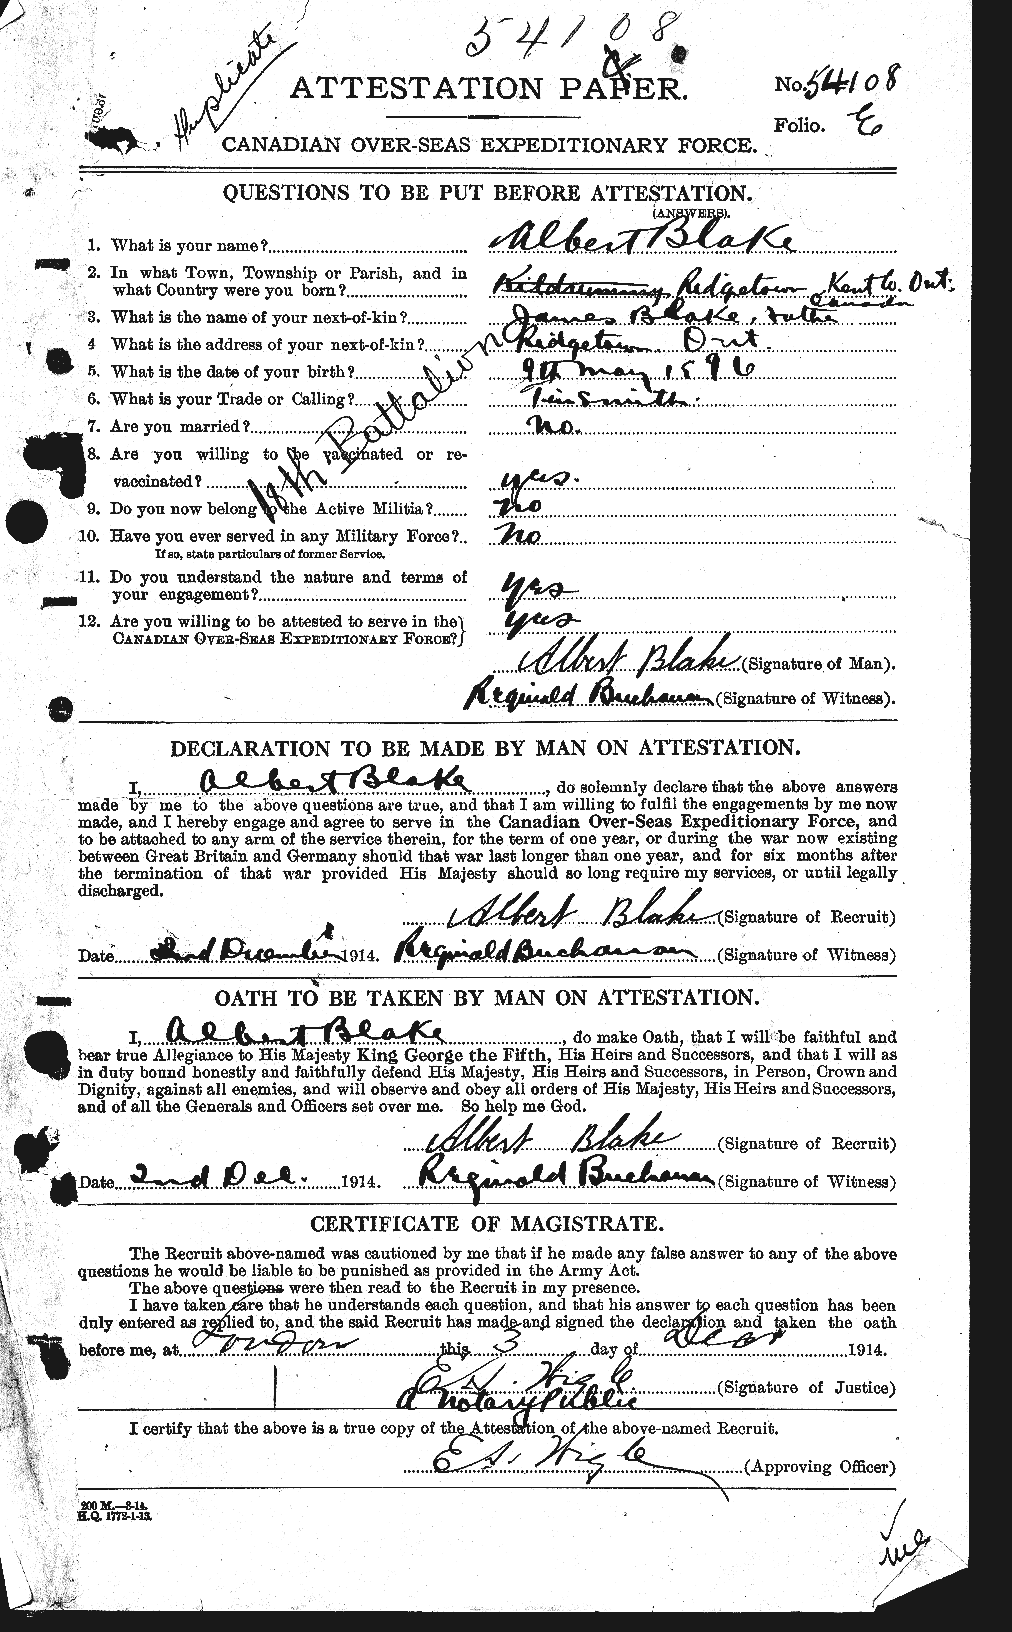 54108
Duplicate
ATTESTATION PAPER.
No. 54108
Folio. E
CANADIAN OVER-SEAS EXPEDITIONARY FORCE.
QUESTIONS TO BE PUT BEFORE ATTESTATION.
(ANSWERS).
1. What is your name? Albert Blake
2. In what Town, Township or Parish, and in
what Country were you born? Kildrummy Ridgetown Kent Co. Ont.
Canada
3. What is the name of your next-of-kin? James Blake, Father
4 What is the address of your next-of-kin? Ridgetown Ont.
5. What is the date of your birth? 9th May 1896
6. What is your Trade or Calling? Tinsmith.
7. Are you married? No.
8. Are you willing to be vaccinated or re-
vaccinated? yes.
18th Battalion
9. Do you now belong to the Active Militia? no
10. Have you ever served in any Military Force? No
If so, state particulars of former Service.
11. Do you understand the nature and terms of
your engagement? yes
12. Are you willing to be attested to serve in the
CANADIAN OVER-SEAS EXPEDITIONARY FORCE? yes
Albert Blake (Signature of Man).
Reginald Buchanan (Signature of Witness).
DECLARATION TO BE MADE BY MAN ON ATTESTATION.
I, Albert Blake, do solemnly declare that the above answers
made by me to the above questions are true, and that I am willing to fulfil the engagements by me now
made, and I hereby engage and agree to serve in the Canadian Over-Seas Expeditionary Force, and
to be attached to any arm of the service therein, for the term of one year, or during the war now existing
between Great Britain and Germany should that war last longer than one year, and for six months after
the termination of that war provided His Majesty should so long require my services, or until legally
discharged.
Albert Blake (Signature of Recruit)
Date 2nd December 1914. Reginald Buchanan (Signature of Witness)
OATH TO BE TAKEN BY MAN ON ATTESTATION.
I, Albert Blake, do make Oath, that I will be faithful and
bear true Allegiance to His Majesty King George the Fifth, His Heirs and Successors, and that I will as
in duty bound honestly and faithfully defend His Majesty, His Heirs and Successors, in Person, Crown and
Dignity, against all enemies, and will observe and obey all orders of His Majesty, His Heirs and Successors,
and of all the Generals and Officers set over me. So help me God.
Albert Blake (Signature of Recruit)
Date 2nd Dec. 1914. Reginald Buchanan (Signature of Witness)
CERTIFICATE OF MAGISTRATE.
The Recruit above-named was cautioned by me that if he made any false answer to any of the above
questions he would be liable to be punished as provided in the Army Act.
The above questions were then read to the Recruit in my presence.
I have taken care that he understands each question, and that his answer to each question has been
duly entered as replied to, and the said Recruit has made and signed the declaration and taken the oath
before me, at London this 3 day of Decr 1914.
E S. Wigle (Signature of Justice)
a Notary Public
I certify that the above is a true copy of the Attestation of the above-named Recruit.
E S. Wigle (Approving Officer)
200 M.—8-14.
H.Q. 1772-1-13.